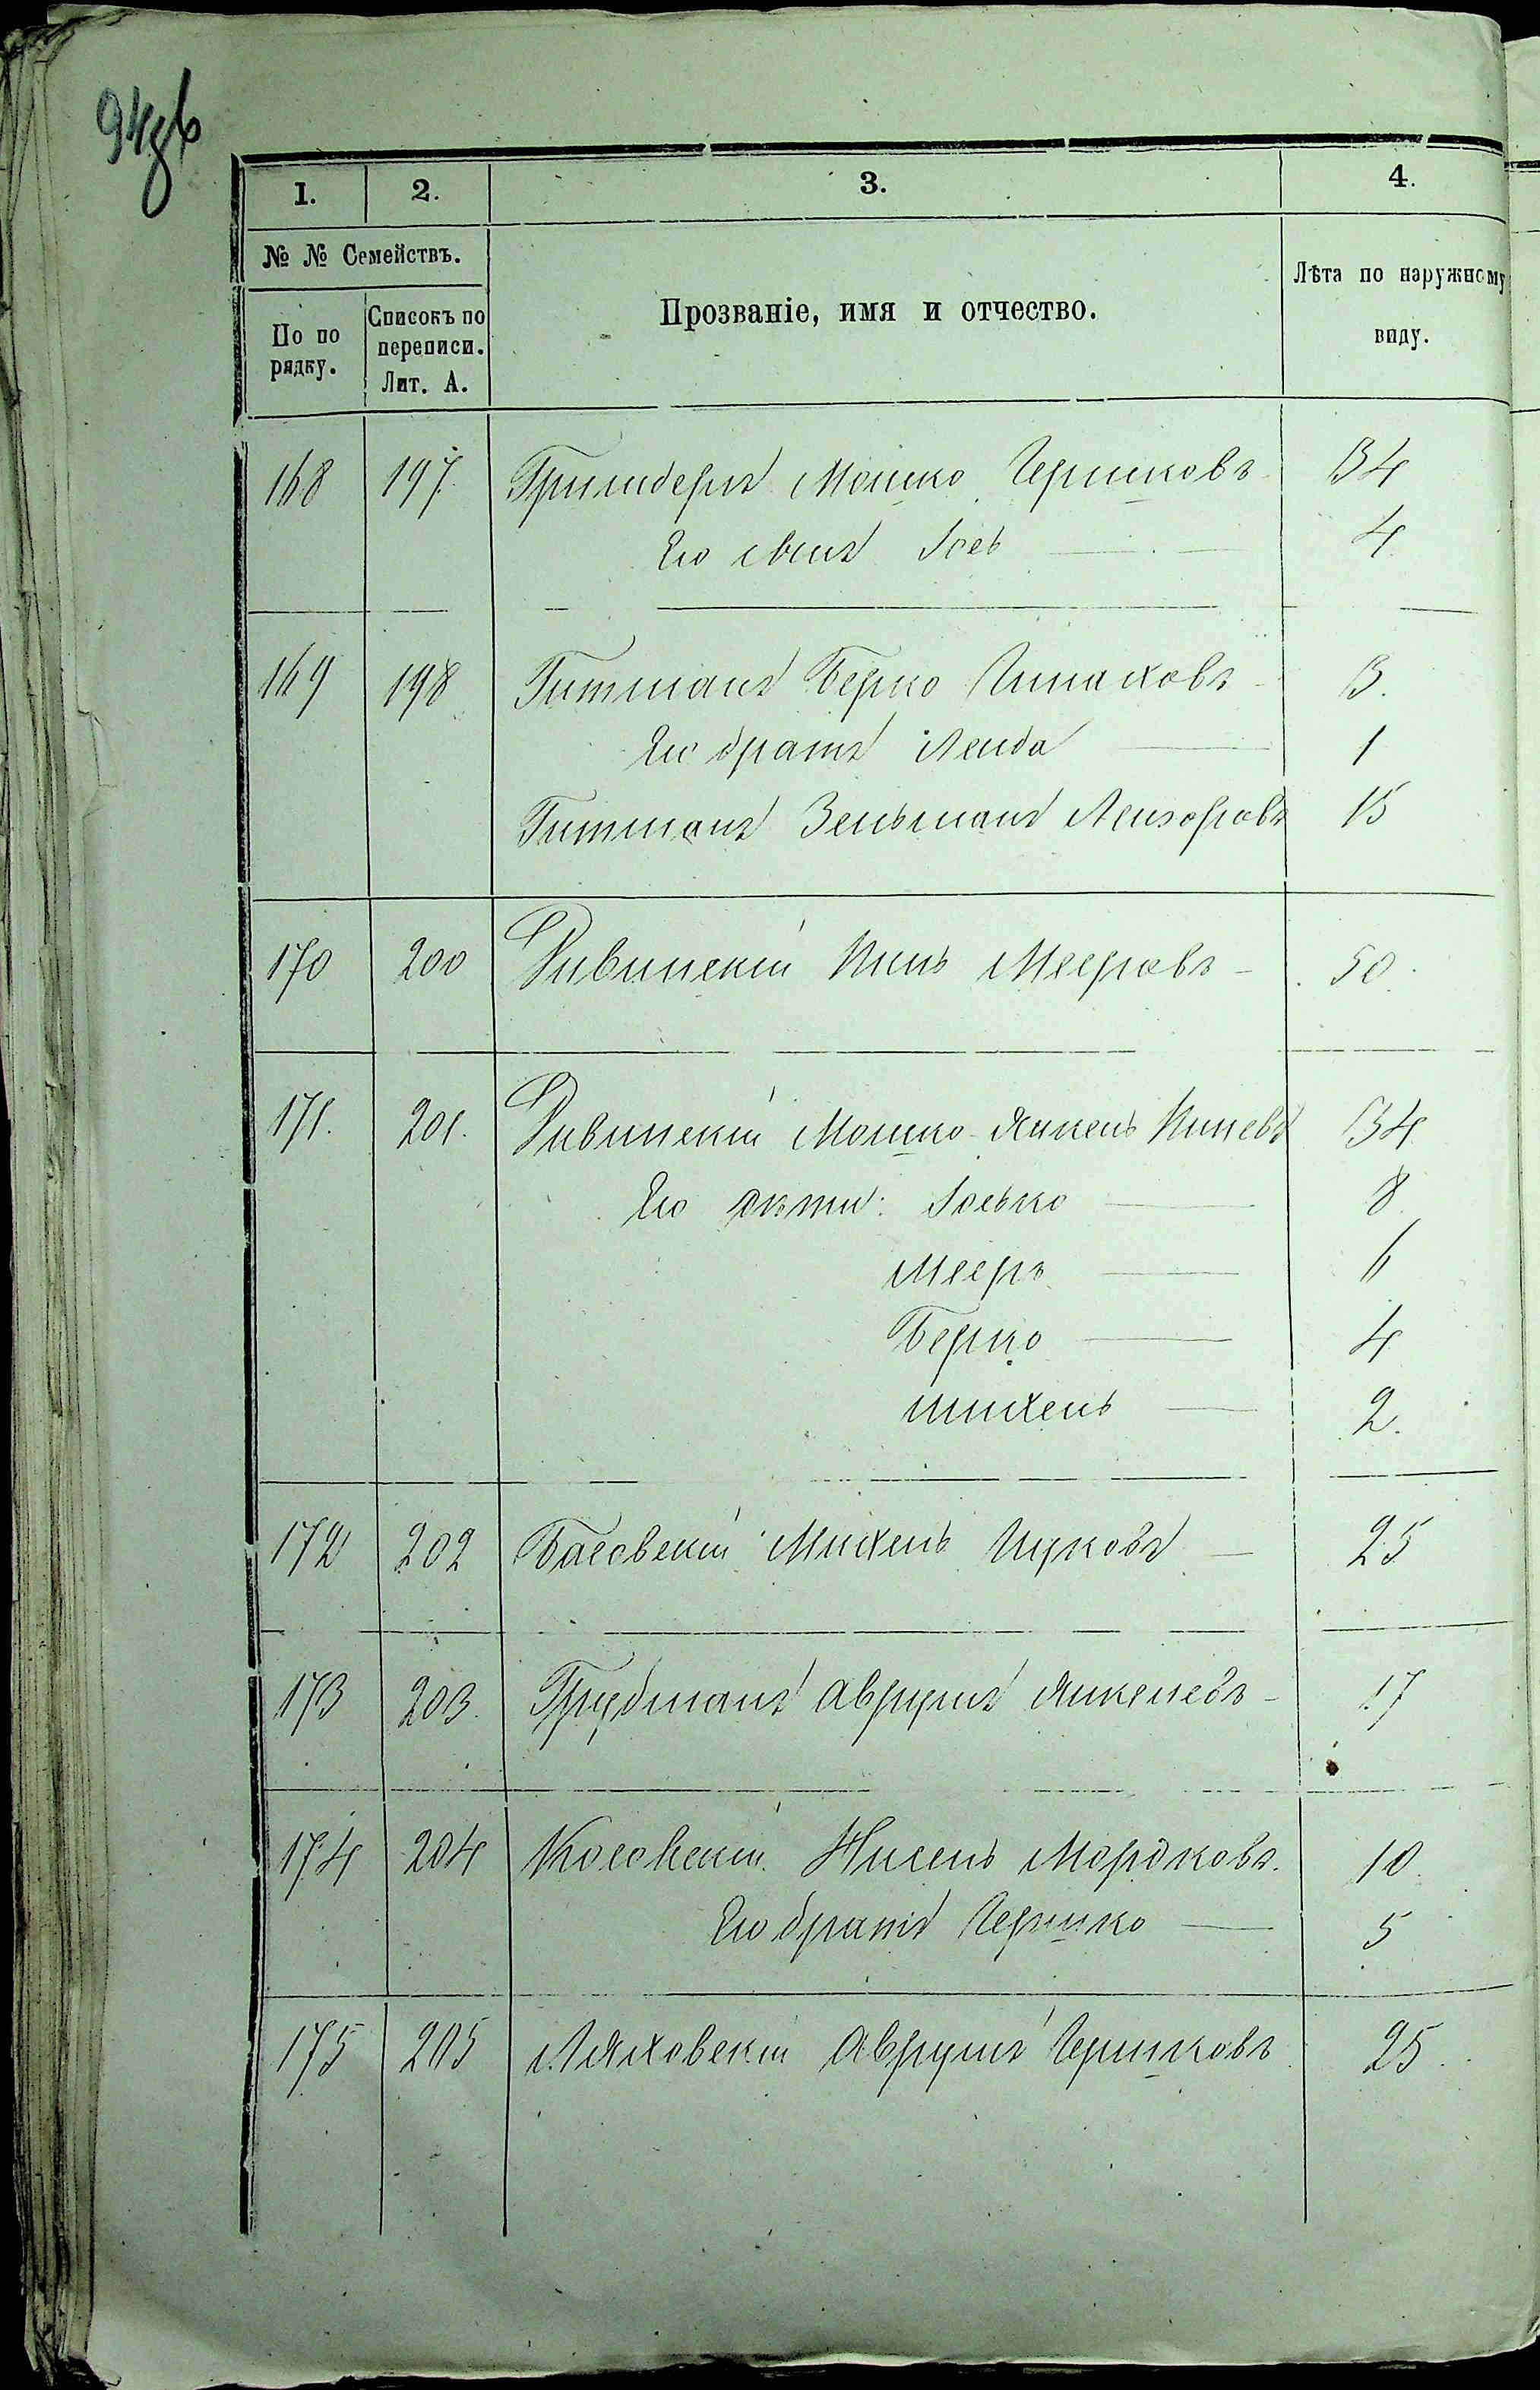 94об
1. 2. 3. 4.
№ № Семействъ.
По по рядку.
Списокъ по переписи. Лит. А.
Прозваніе, имя и отчество.
Лѣта по наружному виду.
168 197. Мошко Гершковъ 34
Его сынъ Іось 4
169 198 Гитманъ Берко 3.
Его братъ Лейба 1
Гитманъ Зельманъ Лейзоровъ 15
170 200 Ривинскій Кив Мееровъ 50
171. 201. Ривинскій Мошко-Янкель 34
Его дѣти: Іосько 8
Мееръ 6
Берко 4
Михель 2.
172 202 Басовскій Михель Ицковъ 25
173 203. Грубманъ Аврумъ Янкелевъ 17
174 204 Косовскій Нисель Мордковъ. 10
Его братъ Гершко 5
175 205 Ляховскій Аврумъ Гершковъ 25